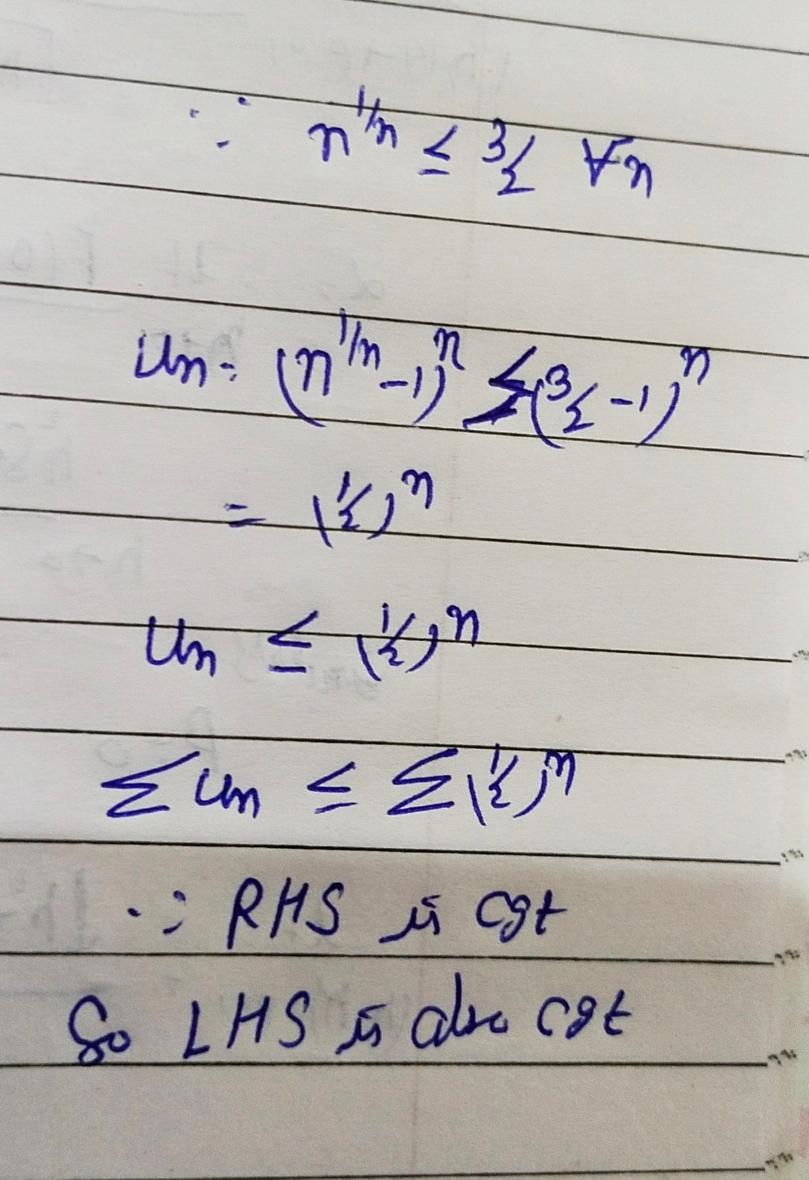 ∵ n^{1/n} ≤ 3/2 ∀n
Un = (n^{1/n} - 1)^n ≤ (3/2 - 1)^n
= (1/2)^n
Un ≤ (1/2)^n
∑ Un ≤ ∑ (1/2)^n
∵ RHS is cgt
So LHS is also cgt